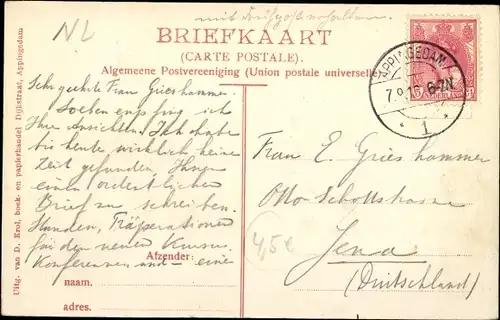 NL
mit
BRIEFKAART
(CARTE POSTALE).
Algemeene Postvereeniging (Union postale universelle)
APPINGEDAM
7.9.16 6-7N
1
Sehr geehrte Frau Grieshammer.
Soeben empfing ich
Ihre Ansichten. Ich habe
bis heute wirklich keine
Zeit gefunden, Ihnen
einen ordentlichen
Brief zu schreiben.
Stunden, Präperationen
für den neuen Kursus,
Konferenzen und - eine
Afzender:
naam.
adres.
Frau E. Grieshammer
Otto Schottstrasse
Jena
(Duitschland)
4,5€
Uitg. van D. Krol, boek- en papierhandel Dijkstraat, Appingedam